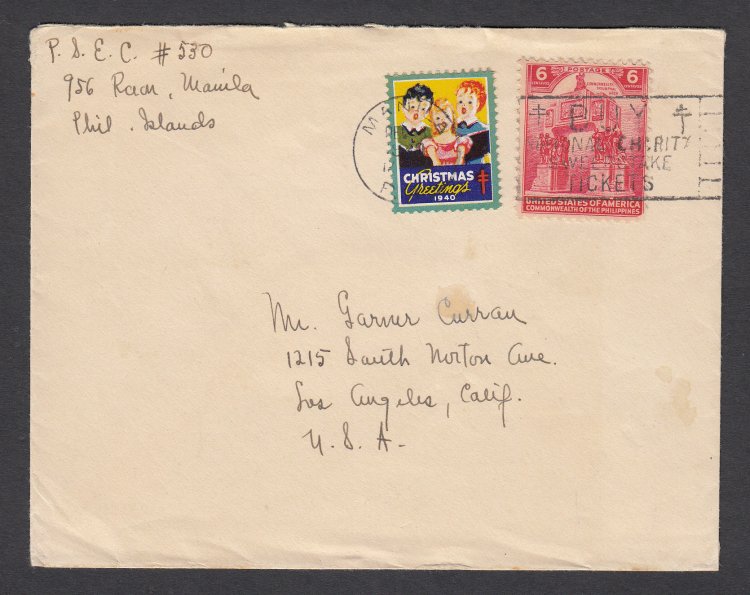 P. S. E. C. #530
956 Raon, Manila
Phil. Islands
CHRISTMAS
Greetings
1940
6 POSTAGE 6
CENTAVOS CENTAVOS
UNITED STATES OF AMERICA
COMMONWEALTH OF THE PHILIPPINES
BUY
NATIONAL CHARITY
SWEEPSTAKE
TICKETS
Mr. Garner Curran
1215 South Norton Ave.
Los Angeles, Calif.
U. S. A.